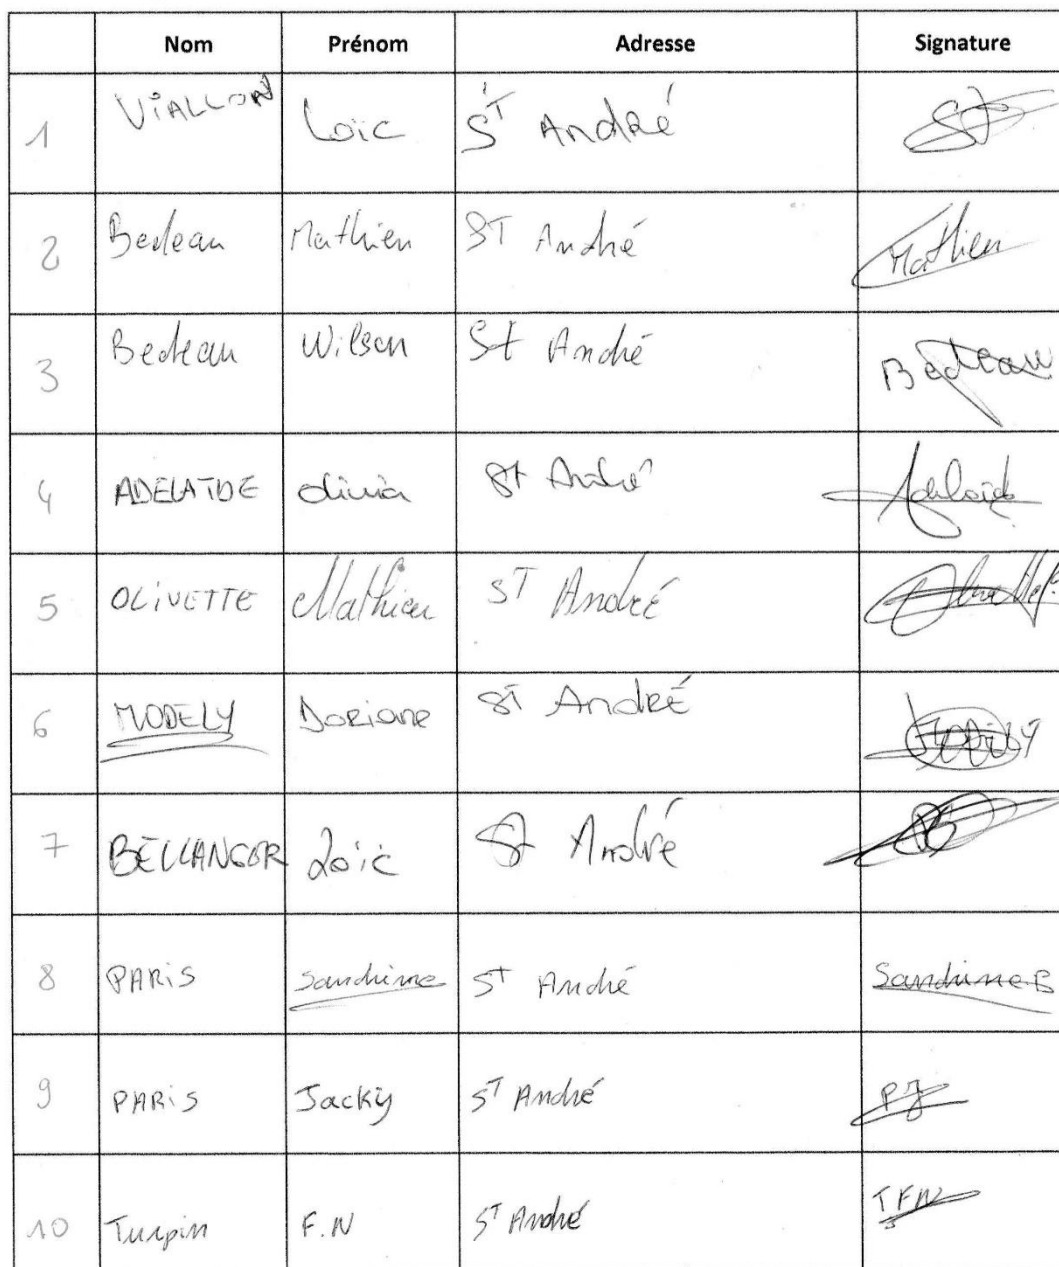 Nom Prénom Adresse Signature
1 VIALLON Loïc ST André
2 Bedeau Mathieu ST André Mathieu
3 Bedeau Wilson St André Bedeau
4 ADELAIDE olivia St André Adelaide
5 OLIVETTE Mathieu ST André
6 MODELY Doriane ST ANDRÉ
7 BELLANGER Loïc St André
8 PARIS Sandrine ST André Sandrine.B
9 PARIS Jacky ST André PJ
10 Turpin F.N ST André TFN